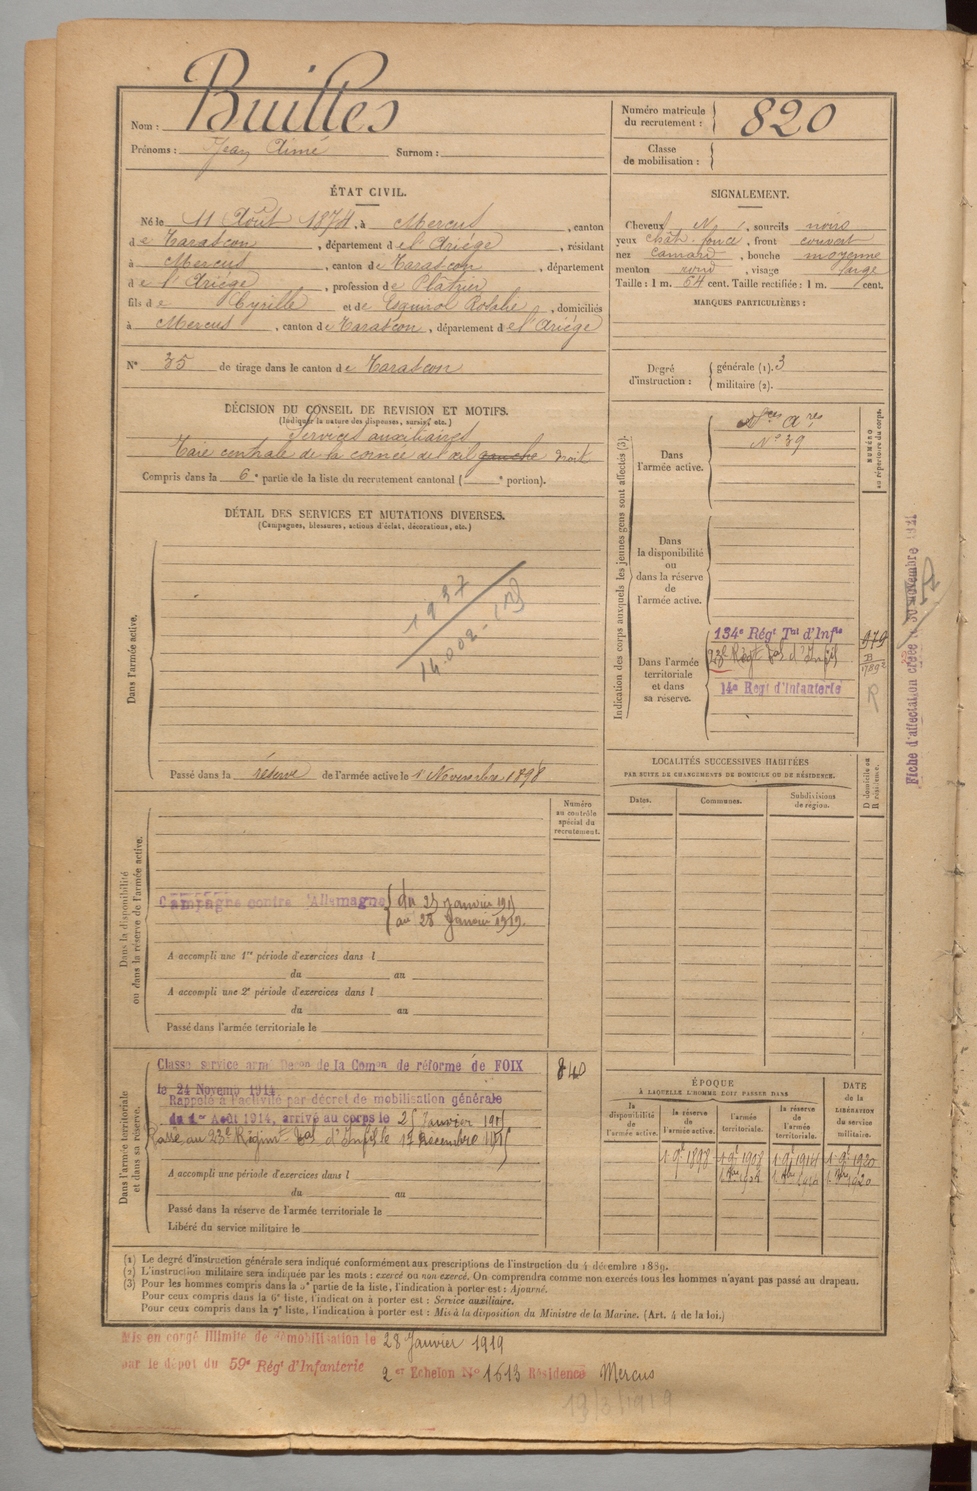 Nom : Builles
Prénoms : Jean Aimé Surnom :
Numéro matricule du recrutement : 820
Classe de mobilisation :
ÉTAT CIVIL.
Né le 11 Août 1874, à Mercus, canton
de Tarascon, département de l'Ariège, résidant
à Mercus, canton de Tarascon, département
de l'Ariège, profession de Plâtrier
fils de Cyrille et de Esquirol Rosalie, domiciliés
à Mercus, canton de Tarascon, département de l'Ariège
N° 35 de tirage dans le canton de Tarascon
SIGNALEMENT.
Cheveux N, sourcils noirs
yeux chât. foncé, front couvert
nez camard, bouche moyenne
menton rond, visage large
Taille : 1 m. 64 cent. Taille rectifiée : 1 m. cent.
MARQUES PARTICULIÈRES :
Degré d'instruction : générale (1). 3
militaire (2).
DÉCISION DU CONSEIL DE REVISION ET MOTIFS.
(Indiquer la nature des dispenses, sursis, etc.)
Services auxiliaires
Taie centrale de la cornée de l'œil gauche droit
Compris dans la 6e partie de la liste du recrutement cantonal ( e portion).
DÉTAIL DES SERVICES ET MUTATIONS DIVERSES.
(Campagnes, blessures, actions d'éclat, décorations, etc.)
Dans l'armée active.
1937
14.002
Passé dans la réserve de l'armée active le 1 Novembre 1898
Indication des corps auxquels les jeunes gens sont affectés (3).
NUMÉRO au répertoire du corps.
Dans l'armée active.
N° 39
Dans la disponibilité ou dans la réserve de l'armée active.
Dans l'armée territoriale et dans sa réserve.
134e Régt Tal d'Infie
23e Régt Tal d'Infie
14e Regt d'Infanterie
979
R
Fiche d'affectation créée le 30 novembre 1921
LOCALITÉS SUCCESSIVES HABITÉES
PAR SUITE DE CHANGEMENTS DE DOMICILE OU DE RÉSIDENCE.
Dates. Communes. Subdivisions de région.
D domicile ou R résidence.
Dans la disponibilité ou dans la réserve de l'armée active.
Numéro au contrôle spécial du recrutement.
Campagne contre l'Allemagne du 25 janvier 1915
au 28 Janvier 1919.
A accompli une 1re période d'exercices dans l
du au
A accompli une 2e période d'exercices dans l
du au
Passé dans l'armée territoriale le
Dans l'armée territoriale et dans sa réserve.
Classé service armé Décon de la Comon de réforme de FOIX
840
le 24 Novemb 1914
Rappelé à l'activité par décret de mobilisation générale
du 1er Août 1914, arrivé au corps le 25 Janvier 1915
Passé au 23e Régiment Tal d'Infie le 12 Décembre 1915
A accompli une période d'exercices dans l
du au
Passé dans la réserve de l'armée territoriale le
Libéré du service militaire le
ÉPOQUE
À LAQUELLE L'HOMME DOIT PASSER DANS
DATE de la LIBÉRATION du service militaire.
la disponibilité de l'armée active. la réserve de l'armée active. l'armée territoriale. la réserve de l'armée territoriale.
1 9e 1898 1 9e 1908 1 9e 1914 1 9e 1920
(1) Le degré d'instruction générale sera indiqué conformément aux prescriptions de l'instruction du 4 décembre 1889.
(2) L'instruction militaire sera indiquée par les mots : exercé ou non exercé. On comprendra comme non exercés tous les hommes n'ayant pas passé au drapeau.
(3) Pour les hommes compris dans la 5e partie de la liste, l'indication à porter est : Ajourné.
Pour ceux compris dans la 6e liste, l'indication à porter est : Service auxiliaire.
Pour ceux compris dans la 7e liste, l'indication à porter est : Mis à la disposition du Ministre de la Marine. (Art. 4 de la loi.)
Mis en congé illimité de démobilisation le 28 Janvier 1919
par le dépot du 59e Régt d'Infanterie 2er Echelon No 1613 Résidence Mercus
19/3/1919